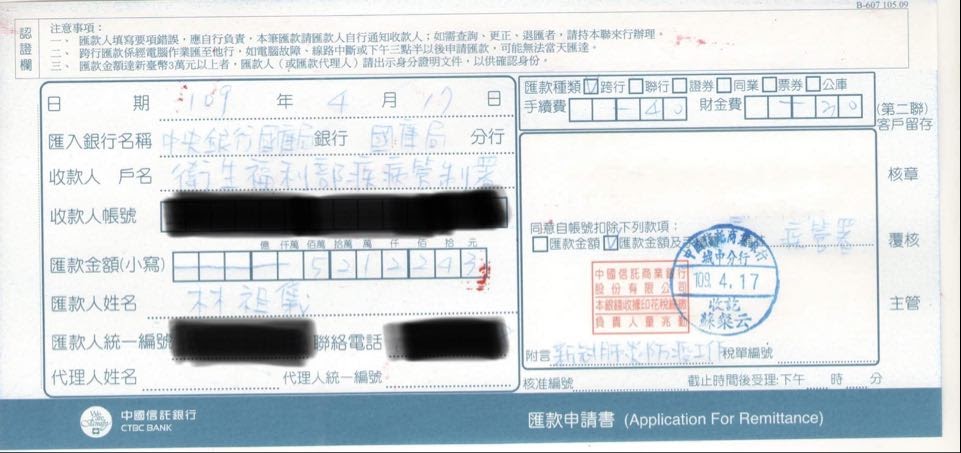 B-607 105.09
認證欄
注意事項：
一、匯款人填寫要項錯誤，應自行負責，本筆匯款請匯款人自行通知收款人；如需查詢、更正、退匯者，請持本聯來行辦理。
二、跨行匯款係經電腦作業匯至他行，如電腦故障、線路中斷或下午三點半以後申請匯款，可能無法當天匯達。
三、匯款金額達新臺幣3萬元以上者，匯款人（或匯款代理人）請出示身分證明文件，以供確認身份。
日 期 109 年 4 月 17 日
匯款種類 跨行 聯行 證券 同業 票券 公庫
手續費 40 財金費 20
(第二聯)
客戶留存
匯入銀行名稱 中央銀行國庫局 銀行 國庫局 分行
收款人 戶名 衛生福利部疾病管制署
收款人帳號
億 仟萬 佰萬 拾萬 萬 仟 佰 拾 元
匯款金額(小寫) 5212243
匯款人姓名 林祖儀
匯款人統一編號 聯絡電話
代理人姓名 代理人統一編號
同意自帳號扣除下列款項：
匯款金額 匯款金額及手 疾管署
中國信託商業銀行
城中分行
109. 4. 17
收訖
蘇粲云
中國信託商業銀行
股份有限公司
本銀錢收據印花稅總繳
負責人童兆勤
附言 新冠肺炎防疫工作 稅單編號
核准編號 截止時間後受理：下午 時 分
核章
覆核
主管
We are family
中國信託銀行
CTBC BANK
匯款申請書 (Application For Remittance)